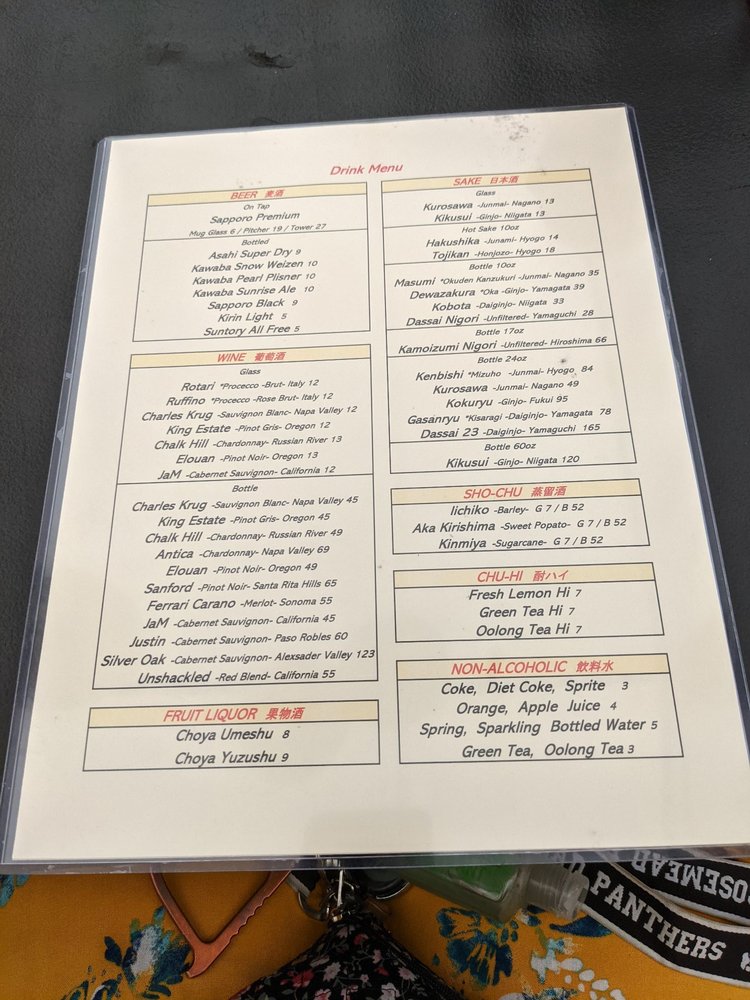 Drink Menu
BEER 麦酒
On Tap
Sapporo Premium
Mug Glass 6 / Pitcher 19 / Tower 27
Bottled
Asahi Super Dry 9
Kawaba Snow Weizen 10
Kawaba Pearl Plisner 10
Kawaba Sunrise Ale 10
Sapporo Black 9
Kirin Light 5
Suntory All Free 5
WINE 葡萄酒
Glass
Rotari *Procecco -Brut- Italy 12
Ruffino *Procecco -Rose Brut- Italy 12
Charles Krug -Sauvignon Blanc- Napa Valley 12
King Estate -Pinot Gris- Oregon 12
Chalk Hill -Chardonnay- Russian River 13
Elouan -Pinot Noir- Oregon 13
JaM -Cabernet Sauvignon- California 12
Bottle
Charles Krug -Sauvignon Blanc- Napa Valley 45
King Estate -Pinot Gris- Oregon 45
Chalk Hill -Chardonnay- Russian River 49
Antica -Chardonnay- Napa Valley 69
Elouan -Pinot Noir- Oregon 49
Sanford -Pinot Noir- Santa Rita Hills 65
Ferrari Carano -Merlot- Sonoma 55
JaM -Cabernet Sauvignon- California 45
Justin -Cabernet Sauvignon- Paso Robles 60
Silver Oak -Cabernet Sauvignon- Alexsader Valley 123
Unshackled -Red Blend- California 55
FRUIT LIQUOR 果物酒
Choya Umeshu 8
Choya Yuzushu 9
SAKE 日本酒
Glass
Kurosawa -Junmai- Nagano 13
Kikusui -Ginjo- Niigata 13
Hot Sake 10oz
Hakushika -Junami- Hyogo 14
Tojikan -Honjozo- Hyogo 18
Bottle 10oz
Masumi *Okuden Kanzukuri -Junmai- Nagano 35
Dewazakura *Oka -Ginjo- Yamagata 39
Kobota -Daiginjo- Niigata 33
Dassai Nigori -Unfiltered- Yamaguchi 28
Bottle 17oz
Kamoizumi Nigori -Unfiltered- Hiroshima 66
Bottle 24oz
Kenbishi *Mizuho -Junmai- Hyogo 84
Kurosawa -Junmai- Nagano 49
Kokuryu -Ginjo- Fukui 95
Gasanryu *Kisaragi -Daiginjo- Yamagata 78
Dassai 23 -Daiginjo- Yamaguchi 165
Bottle 60oz
Kikusui -Ginjo- Niigata 120
SHO-CHU 蒸留酒
Iichiko -Barley- G 7 / B 52
Aka Kirishima -Sweet Popato- G 7 / B 52
Kinmiya -Sugarcane- G 7 / B 52
CHU-HI 酎ハイ
Fresh Lemon Hi 7
Green Tea Hi 7
Oolong Tea Hi 7
NON-ALCOHOLIC 飲料水
Coke, Diet Coke, Sprite 3
Orange, Apple Juice 4
Spring, Sparkling Bottled Water 5
Green Tea, Oolong Tea 3
PANTHERS
ROSEMEAD